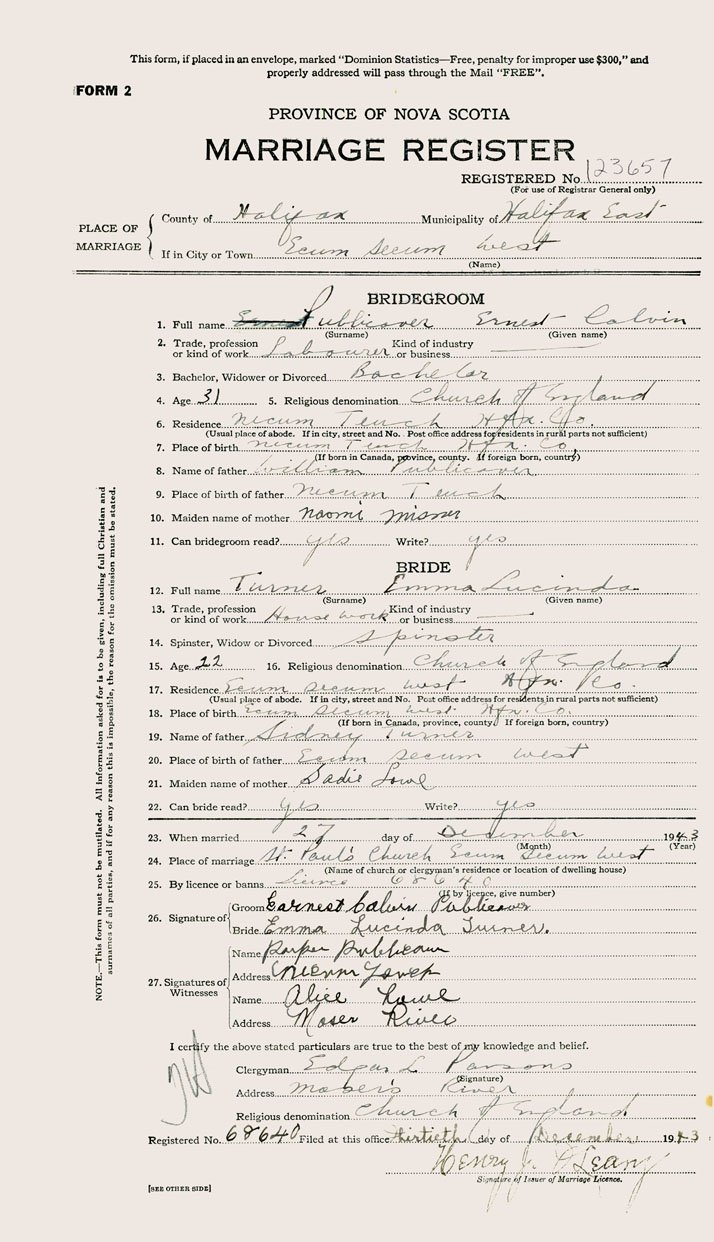 This form, if placed in an envelope, marked "Dominion Statistics—Free, penalty for improper use $300," and
properly addressed will pass through the Mail "FREE".
FORM 2
PROVINCE OF NOVA SCOTIA
MARRIAGE REGISTER
REGISTERED No. 123657
(For use of Registrar General only)
PLACE OF MARRIAGE
County of Halifax Municipality of Halifax East
If in City or Town Ecum Secum West
(Name)
BRIDEGROOM
1. Full name Publicover Ernest Calvin
(Surname) (Given name)
2. Trade, profession or kind of work Labourer Kind of industry or business
3. Bachelor, Widower or Divorced Bachelor
4. Age 31 5. Religious denomination Church of England
6. Residence Necum Teuch Hfx. Co.
(Usual place of abode. If in city, street and No. Post office address for residents in rural parts not sufficient)
7. Place of birth Necum Teuch Hfx. Co.
(If born in Canada, province, county. If foreign born, country)
8. Name of father William Publicover
9. Place of birth of father Necum Teuch
10. Maiden name of mother Naomi Misner
11. Can bridegroom read? yes Write? yes
BRIDE
12. Full name Turner Emma Lucinda
(Surname) (Given name)
13. Trade, profession or kind of work House work Kind of industry or business
14. Spinster, Widow or Divorced Spinster
15. Age 22 16. Religious denomination Church of England
17. Residence Ecum Secum West Hfx. Co.
(Usual place of abode. If in city, street and No. Post office address for residents in rural parts not sufficient)
18. Place of birth Ecum Secum West Hfx. Co.
(If born in Canada, province, county. If foreign born, country)
19. Name of father Sidney Turner
20. Place of birth of father Ecum Secum West
21. Maiden name of mother Sadie Lowe
22. Can bride read? yes Write? yes
23. When married 27 day of December 1943
(Month) (Year)
24. Place of marriage St. Paul's Church Ecum Secum West
(Name of church or clergyman's residence or location of dwelling house)
25. By licence or banns Licence 68640
(If by licence, give number)
26. Signature of
Groom Earnest Calvin Publicover
Bride Emma Lucinda Turner.
27. Signatures of Witnesses
Name Publicover
Address
Name Alice Lowe
Address Moser River
I certify the above stated particulars are true to the best of my knowledge and belief.
Clergyman Edgar L Parsons
(Signature)
Address Moser's River
Religious denomination Church of England
Registered No. 68640 Filed at this office thirtieth day of December 1943
Henry J. O'Leary
Signature of Issuer of Marriage Licence.
[SEE OTHER SIDE]
NOTE.—This form must not be mutilated. All information asked for is to be given, including full Christian and
surnames of all parties, and if for any reason this is impossible, the reason for the omission must be stated.